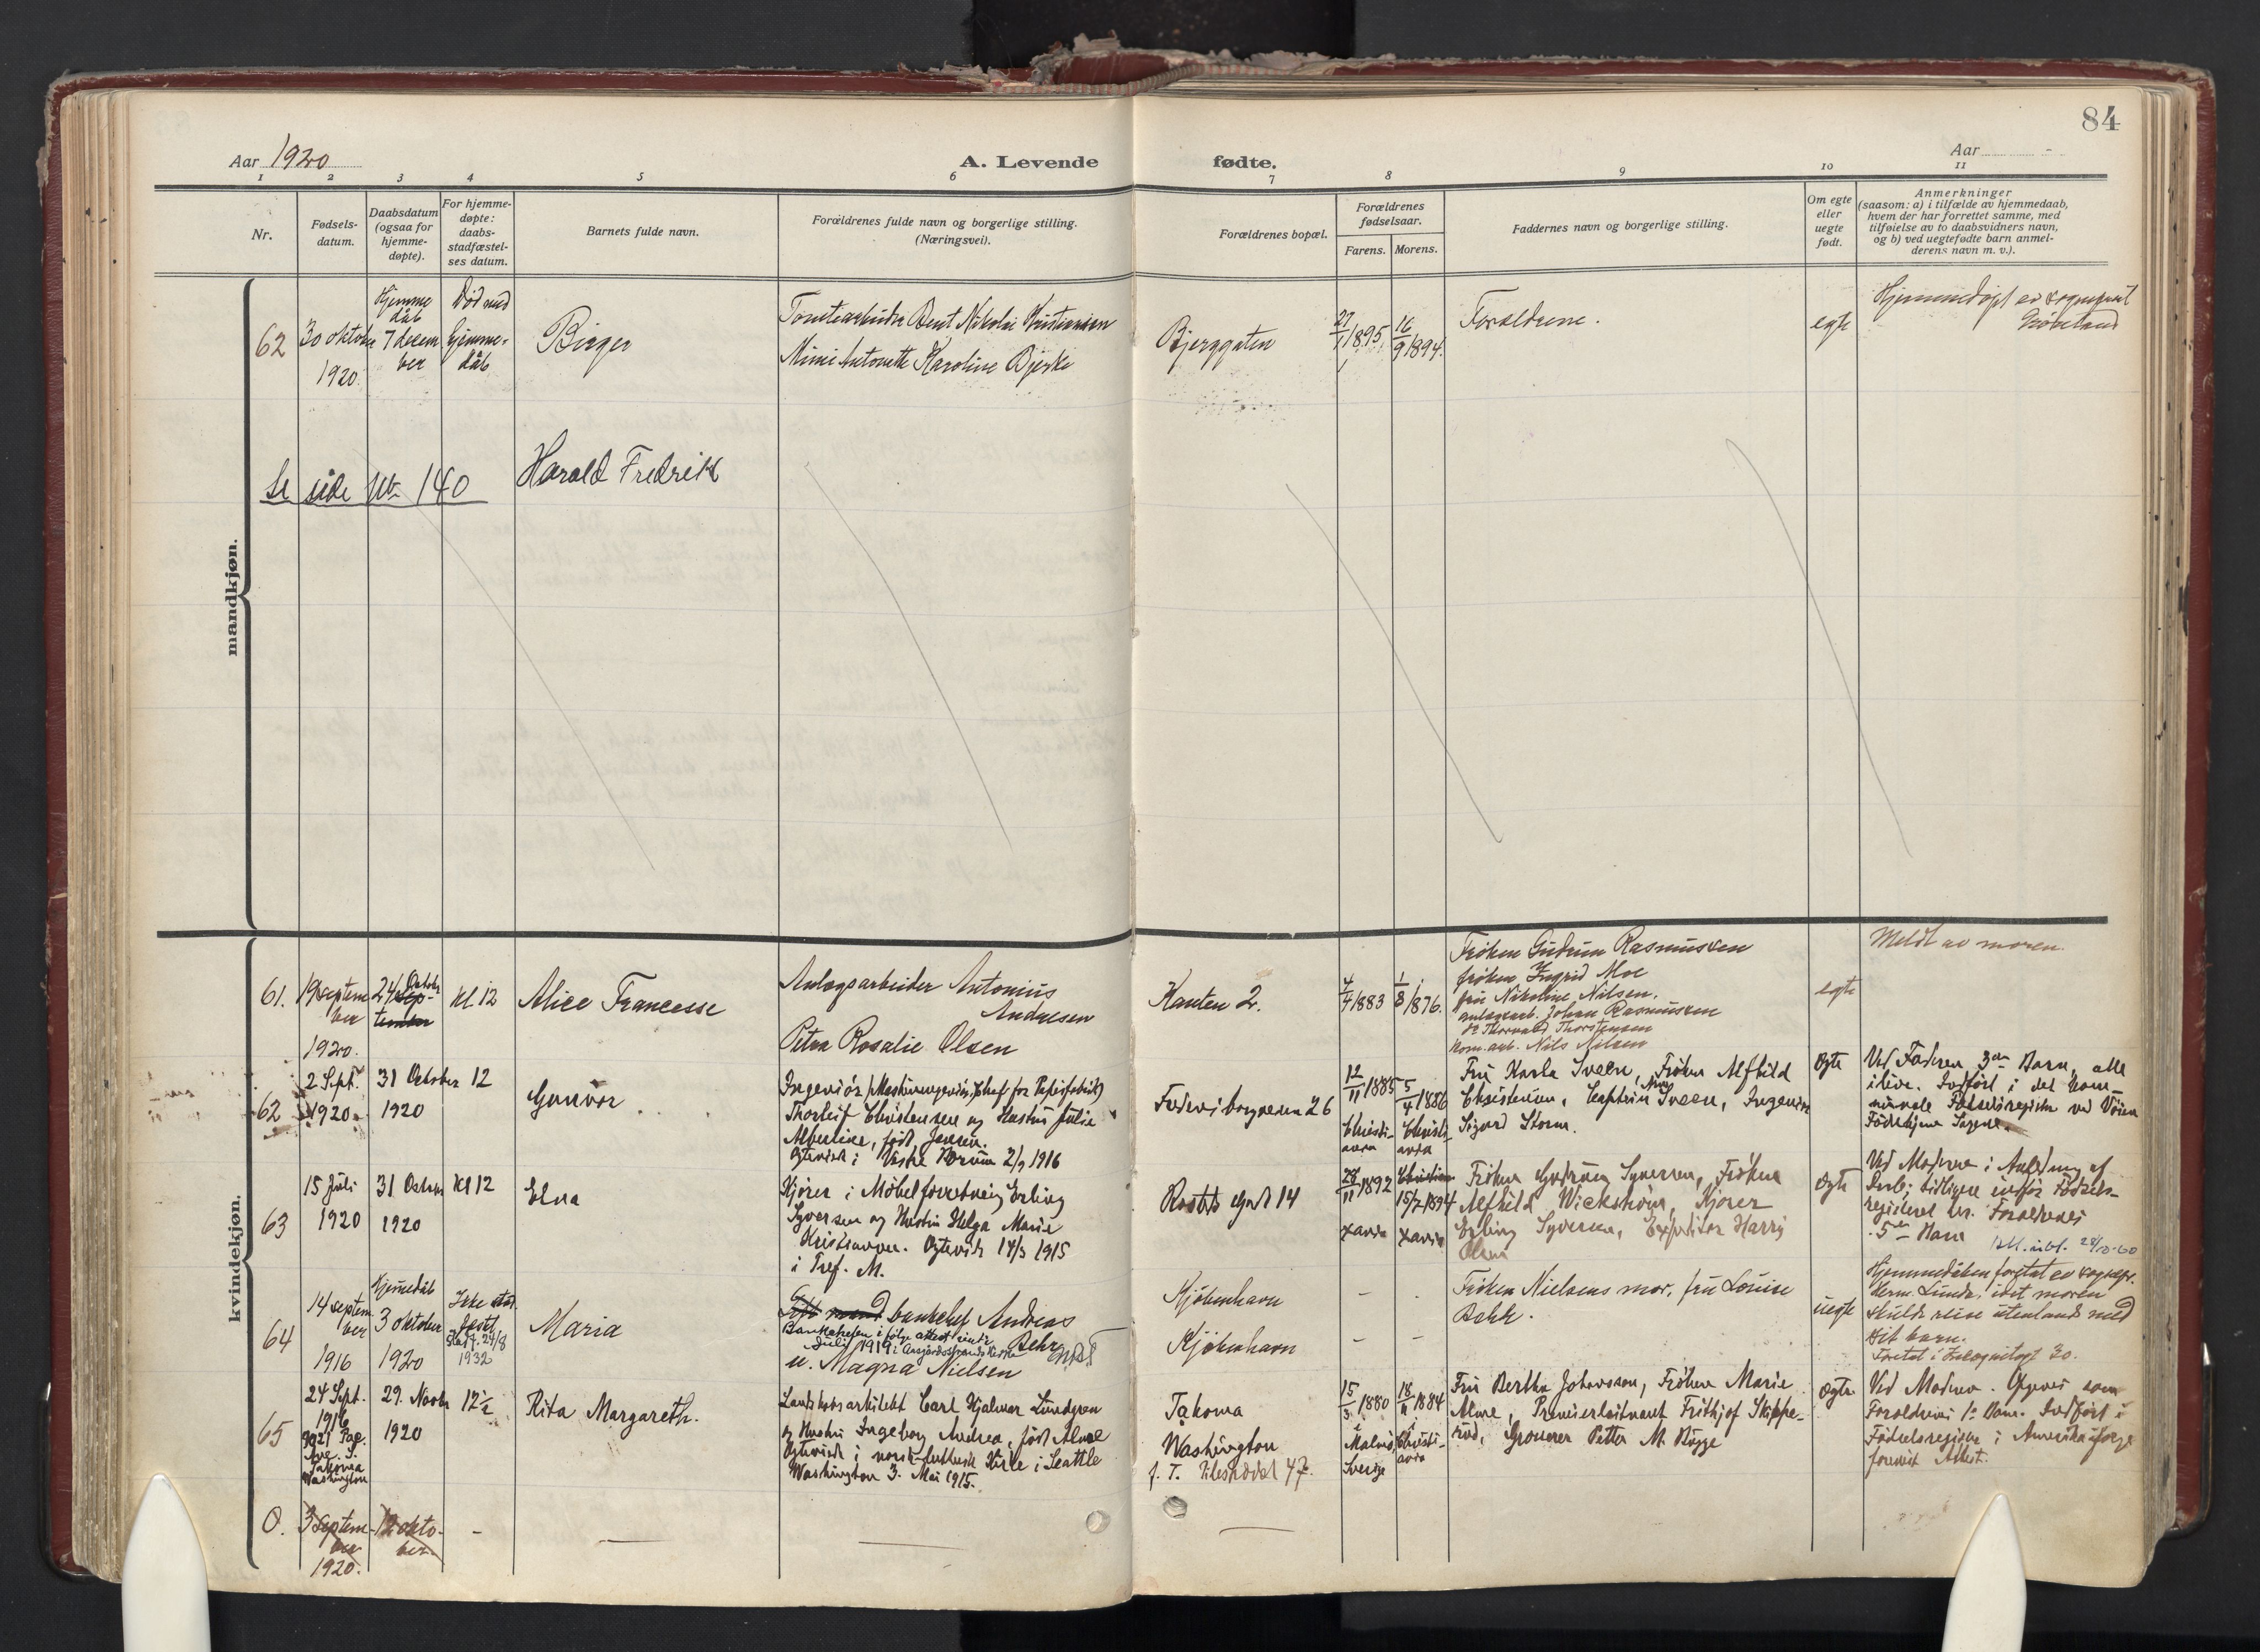 84
Aar 1920
A. Levende fødte.
Aar -
1 2 3 4 5 6 7 8 9 10 11
Nr.
Fødsels-
datum.
Daabsdatum
(ogsaa for
hjemme-
døpte).
For hjemme-
døpte:
daabs-
stadfæstel-
ses datum.
Barnets fulde navn.
Forældrenes fulde navn og borgerlige stilling.
(Næringsvei).
Forældrenes bopæl.
Forældrenes
fødselsaar.
Farens. Morens.
Faddernes navn og borgerlige stilling.
Om egte
eller
uegte
født.
Anmerkninger
(saasom: a) i tilfælde av hjemmedaab,
hvem der har forrettet samme, med
tilføielse av to daabsvidners navn,
og b) ved uegtefødte barn anmel-
derens navn m. v.).
mandkjøn.
62
30 oktober
1920
Hjemme
dåb
7 decem
ber
Død med
hjemme-
dåb
Birger
Tomtearbeider Bent Nikolai Kristiansen
Mimi Antonette Karoline Bjerke
Bjerggaten
27/1 1895
16/9 1894.
Forældrene.
egte
Hjemmedøpt av sogneprest
Se side nr 140
Harald Fredrik
kvindekjøn.
61.
19 septem
ber
1920.
24 Oktober
Sep-
tember
kl. 12
Alice Francesse
Anlægsarbeider Antonius
Andresen
Petra Rosalie Olsen
Kanten 2.
4/4 1883
1/8 1876.
Frøken Gudrun Rasmussen
frøken Ingrid Moe
fru Nikoline Nilsen.
anlægsarb. Johan Rasmussen
do Thorvald Thorstensen
kom. arb. Nils Nilsen
egte
Meldt av moren.
62
2 Sept.
1920
31 October
1920
12
Gunvor
Ingeniør (Maskiningeniør, Chef for Papirfabrik)
Thorleif Christensen og Hustru Julie
Albertine, født Jensen.
Ogteviet i Vestre Bærum 2/9 1916
Fredensborgveien 26
12/11 1885
Christi-
ania
5/4 1886
Christi-
ania
Fru Karla Sveen, Frøken Alfhild
Christensen, Captein Sveen, Ingeniør
Sigurd Storm.
Ogte
Ved Faderen 3de Barn, alle
ilive. Indført i det kom-
munale Fødselsregister ved Vøien
Fødehjem Sagene.
63
15 Juli
1920
31 October
1920
Kl 12
Elna
Kjører i Møbelforretning Erling
Syversen og Hustru Helga Marie
Kristiansen. Ogteviet 14/3 1915
i Tref. M.
14
28/11 1892
Xania
Christiania
15/7 1894
Xania
Frøken Gudrun Syversen, Frøken
Alfhild Wickstrøm, Kjører
Erling Syversen, Expeditør Harry
Olsen
Ogte
Ved Moderen i Anledning af
Daab; tidligere indført Fødsels-
registeret her. Forældrenes
5te Barn
64
14 septem
ber
1916
Hjemmedåb
3 oktober
1920
Ikke stad
fæstet
Stadf. 24/8
1932
Maria
bankchef Andreas
Behr
u. Magna Nielsen
Kjøbenhavn
Kjøbenhavn
- -
- -
Frøken Nielsens mor, fru Louise
Bakk.
uegte
Hjemmedåben foretat av sognepr.
Herm. Lunde, idet moren
skulde reise utenlands med
sit barn.
65
24 Sept.
1916
3021 Pac.
Ave. S.
Takoma
Washington
29. Novbr
1920
12½
Rita Margareth.
Landskabsarkitekt Carl Hjalmar Lundgren
og Hustru Ingeborg Andrea, født Alme
Ogteviet i norsk-luthersk Kirke i Seattle
Washington 3. Mai 1915.
Takoma
Washington
f. T. Pilestrædet 47.
15/3 1880
i
Malmö,
Sverige
18/4 1884
i
Christi-
ania
Fru Bertha Johansson, Frøken Marie
Alme, Premierløitnant Frithjof Skippe-
rud, Grosserer Petter M. Røgge
Ogte
Ved Moderen. Opgives som
Forældrenes 1ste Barn. Indført i
Fødselsregister i Amerika ifølge
forevist Attest.
0.
3 septem-
ber
1920.
12 okto-
ber
-